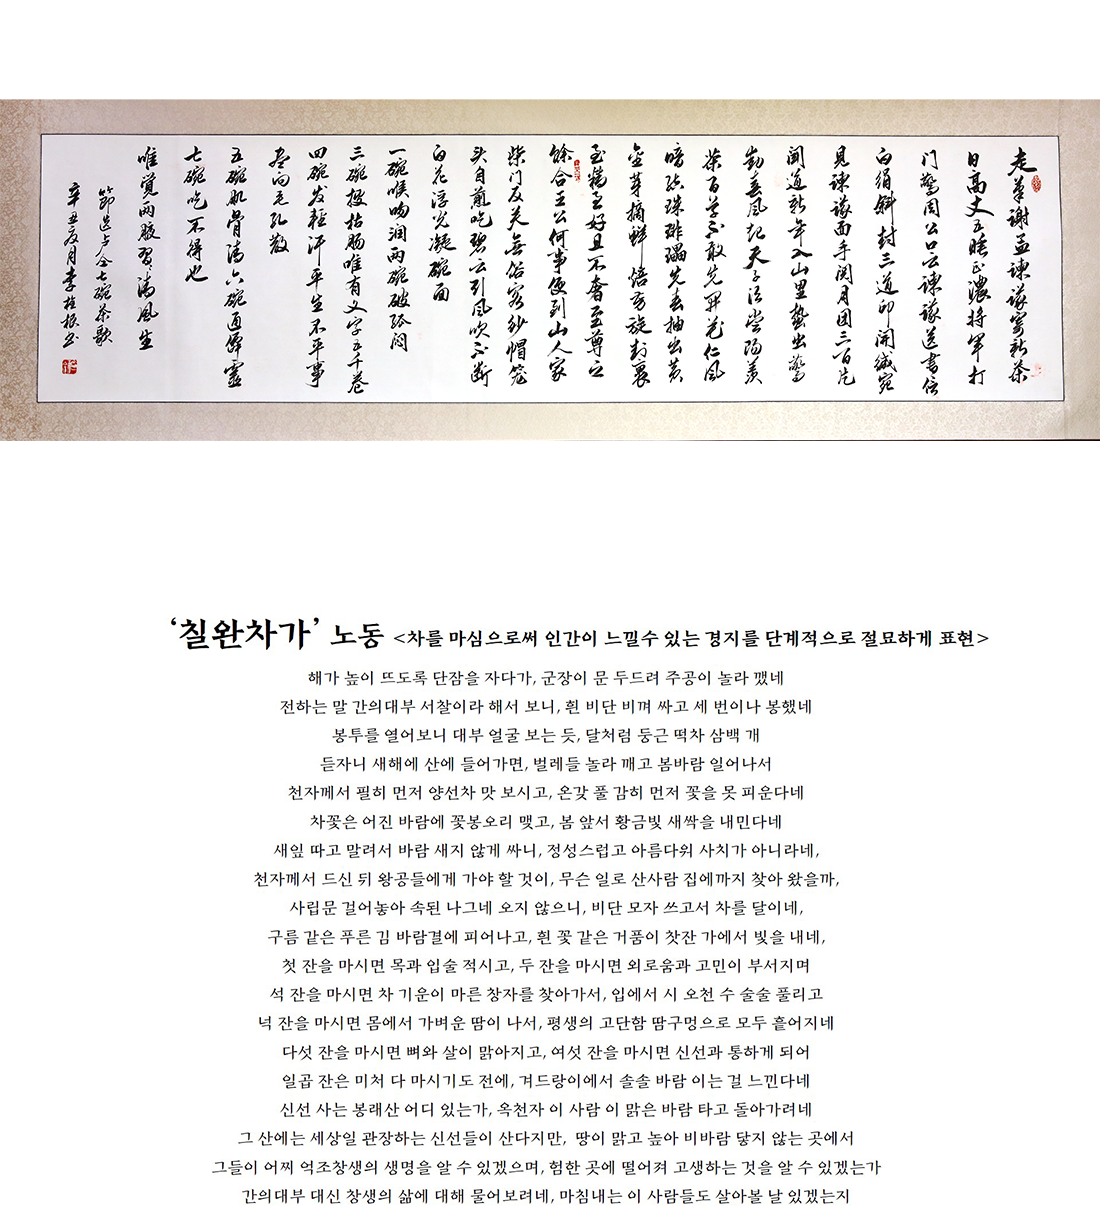 走筆谢孟諫議寄新茶
日高丈五睡正濃將軍打
门驚周公口云諫議送書信
白绢斜封三道印開缄宛
見諫議面手阅月团三百片
闻道新年入山里蟄虫驚
動春风起天子须尝阳羡
茶百草不敢先開花仁风
暗结珠琲瓃先春抽出黄
金芽摘鲜焙芳旋封裹
至精至好且不奢至尊之
餘合王公何事便到山人家
柴门反关無俗客纱帽笼
头自煎吃碧云引风吹不断
白花浮光凝碗面
一碗喉吻润两碗破孤闷
三碗搜枯肠唯有文字五千卷
四碗发輕汗平生不平事
尽向毛孔散
五碗肌骨清六碗通僊靈
七碗吃不得也
唯覺两腋習々清風生
節选卢仝七碗茶歌
辛丑夏月李桂根书
‘칠완차가’ 노동 <차를 마심으로써 인간이 느낄수 있는 경지를 단계적으로 절묘하게 표현>
해가 높이 뜨도록 단잠을 자다가, 군장이 문 두드려 주공이 놀라 깼네
전하는 말 간의대부 서찰이라 해서 보니, 흰 비단 비껴 싸고 세 번이나 봉했네
봉투를 열어보니 대부 얼굴 보는 듯, 달처럼 둥근 떡차 삼백 개
듣자니 새해에 산에 들어가면, 벌레들 놀라 깨고 봄바람 일어나서
천자께서 필히 먼저 양선차 맛 보시고, 온갖 풀 감히 먼저 꽃을 못 피운다네
차꽃은 어진 바람에 꽃봉오리 맺고, 봄 앞서 황금빛 새싹을 내민다네
새잎 따고 말려서 바람 새지 않게 싸니, 정성스럽고 아름다워 사치가 아니라네,
천자께서 드신 뒤 왕공들에게 가야 할 것이, 무슨 일로 산사람 집에까지 찾아 왔을까,
사립문 걸어놓아 속된 나그네 오지 않으니, 비단 모자 쓰고서 차를 달이네,
구름 같은 푸른 김 바람결에 피어나고, 흰 꽃 같은 거품이 찻잔 가에서 빛을 내네,
첫 잔을 마시면 목과 입술 적시고, 두 잔을 마시면 외로움과 고민이 부서지며
석 잔을 마시면 차 기운이 마른 창자를 찾아가서, 입에서 시 오천 수 술술 풀리고
넉 잔을 마시면 몸에서 가벼운 땀이 나서, 평생의 고단함 땀구멍으로 모두 흩어지네
다섯 잔을 마시면 뼈와 살이 맑아지고, 여섯 잔을 마시면 신선과 통하게 되어
일곱 잔은 미처 다 마시기도 전에, 겨드랑이에서 솔솔 바람 이는 걸 느낀다네
신선 사는 봉래산 어디 있는가, 옥천자 이 사람 이 맑은 바람 타고 돌아가려네
그 산에는 세상일 관장하는 신선들이 산다지만, 땅이 맑고 높아 비바람 닿지 않는 곳에서
그들이 어찌 억조창생의 생명을 알 수 있겠으며, 험한 곳에 떨어져 고생하는 것을 알 수 있겠는가
간의대부 대신 창생의 삶에 대해 물어보려네, 마침내는 이 사람들도 살아볼 날 있겠는지